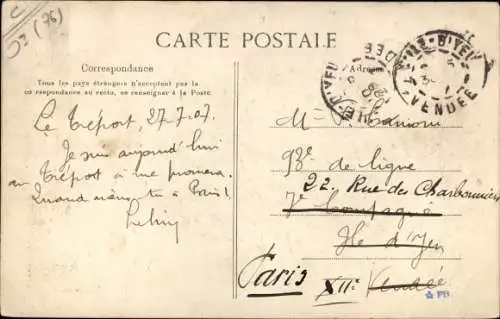 D3 (76)
CARTE POSTALE
Correspondance
Tous les pays étrangers n'acceptent pas la
correspondance au recto, se renseigner à la Poste.
Adresse
ILE-D'YEU
VENDÉE
Le Tréport, 27.7.07.
Je suis aujourd'hui
au Tréport à me promener.
Quand viens-tu à Paris?
Mr
93e de ligne
22 Rue des Charbonniers
7e Compagnie
Ile d'Yeu
Paris XIIe Vendée
PB